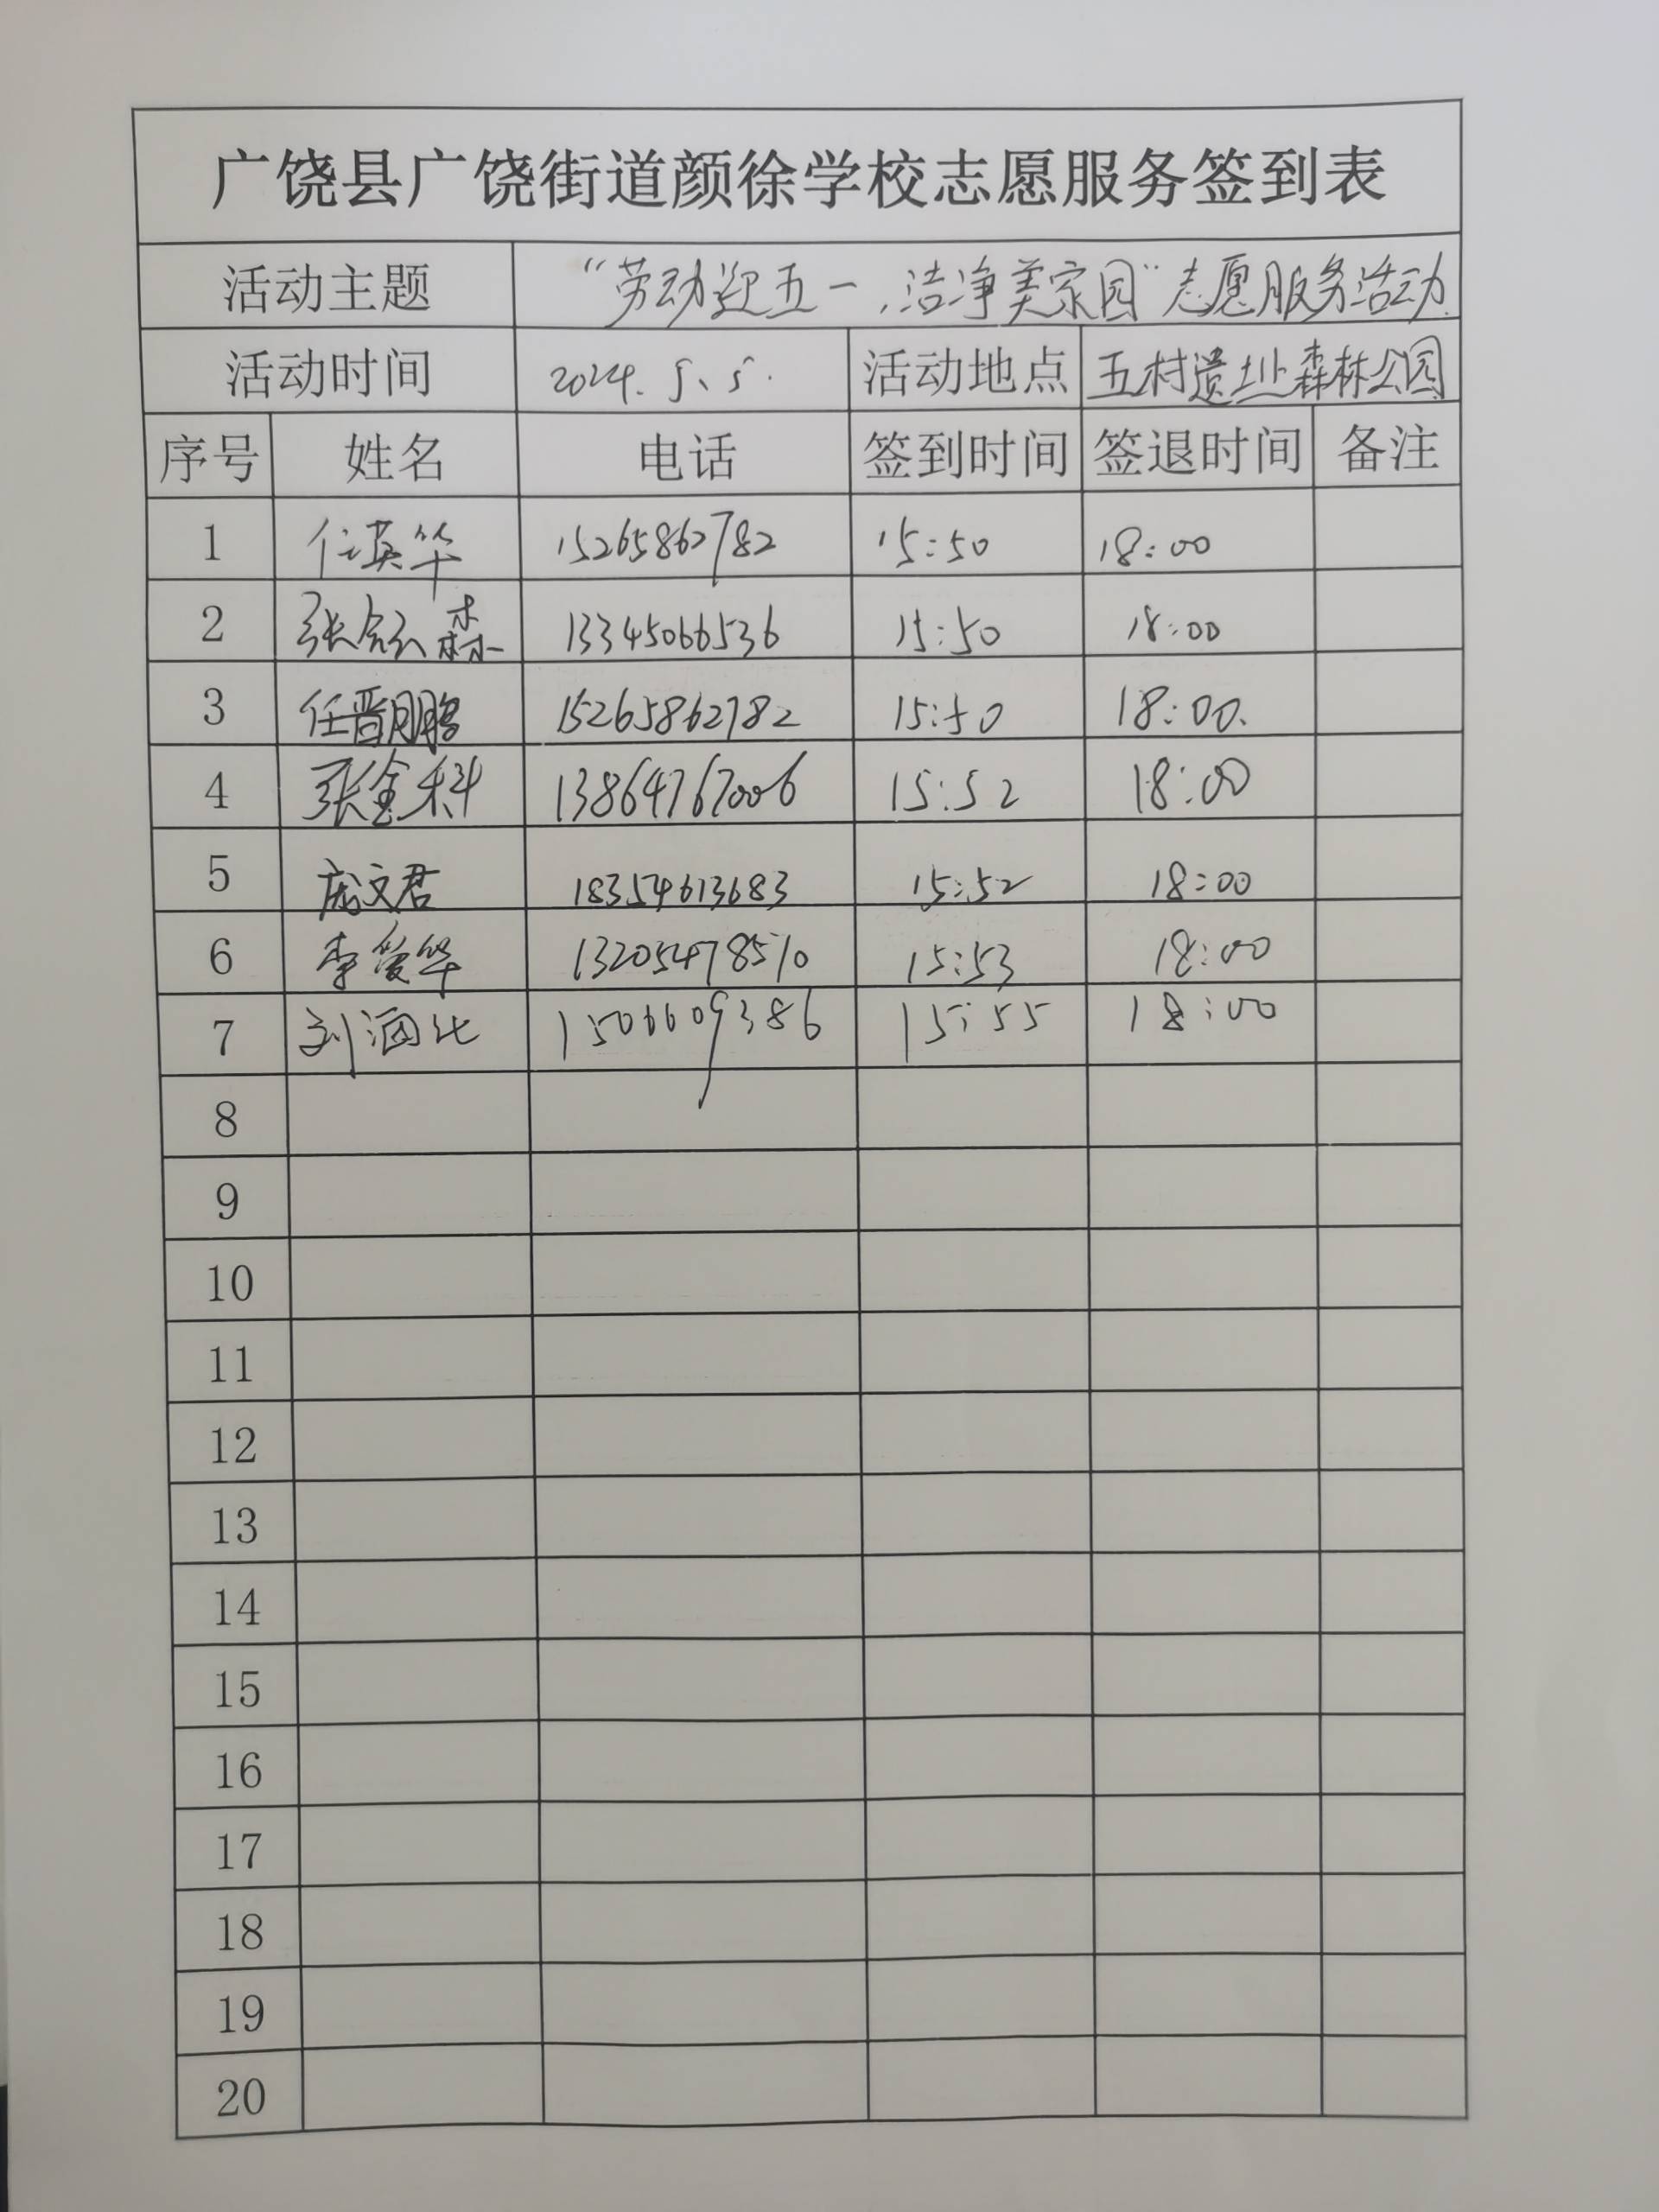 广饶县广饶街道颜徐学校志愿服务签到表
活动主题 “劳动迎五一,洁净美家园”志愿服务活动
活动时间 2024.5、5. 活动地点 五村遗址森林公园
序号 姓名 电话 签到时间 签退时间 备注
1 任英华 15265862782 15:50 18:00
2 张森 13345066536 15:50 18:00
3 任晋鹏 15265862782 15:50 18:00.
4 张金科 13864767006 15:52 18:00
5 庞文君 18354613683 15:52 18:00
6 李爱华 13205478510 15:53 18:00
7 刘涵 1506609386 15:55 18:00
8
9
10
11
12
13
14
15
16
17
18
19
20